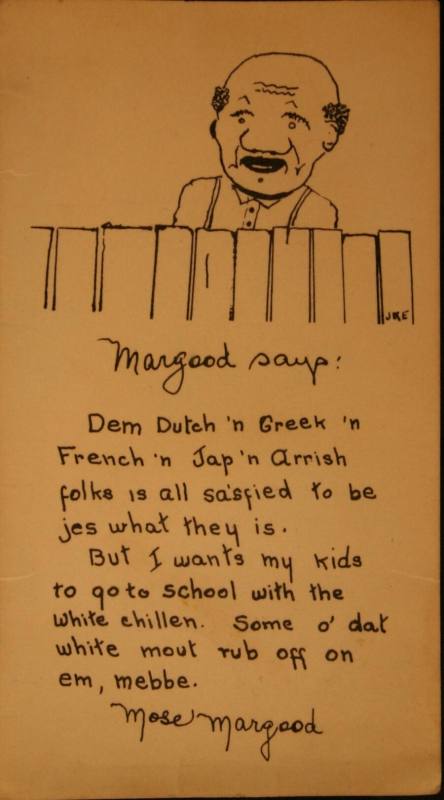 JKE
Margood says:
Dem Dutch 'n Greek 'n
French 'n Jap 'n Arrish
folks is all sa'sfied to be
jes what they is.
But I wants my kids
to go to school with the
white chillen. Some o' dat
white mout rub off on
em, mebbe.
Mose Margood